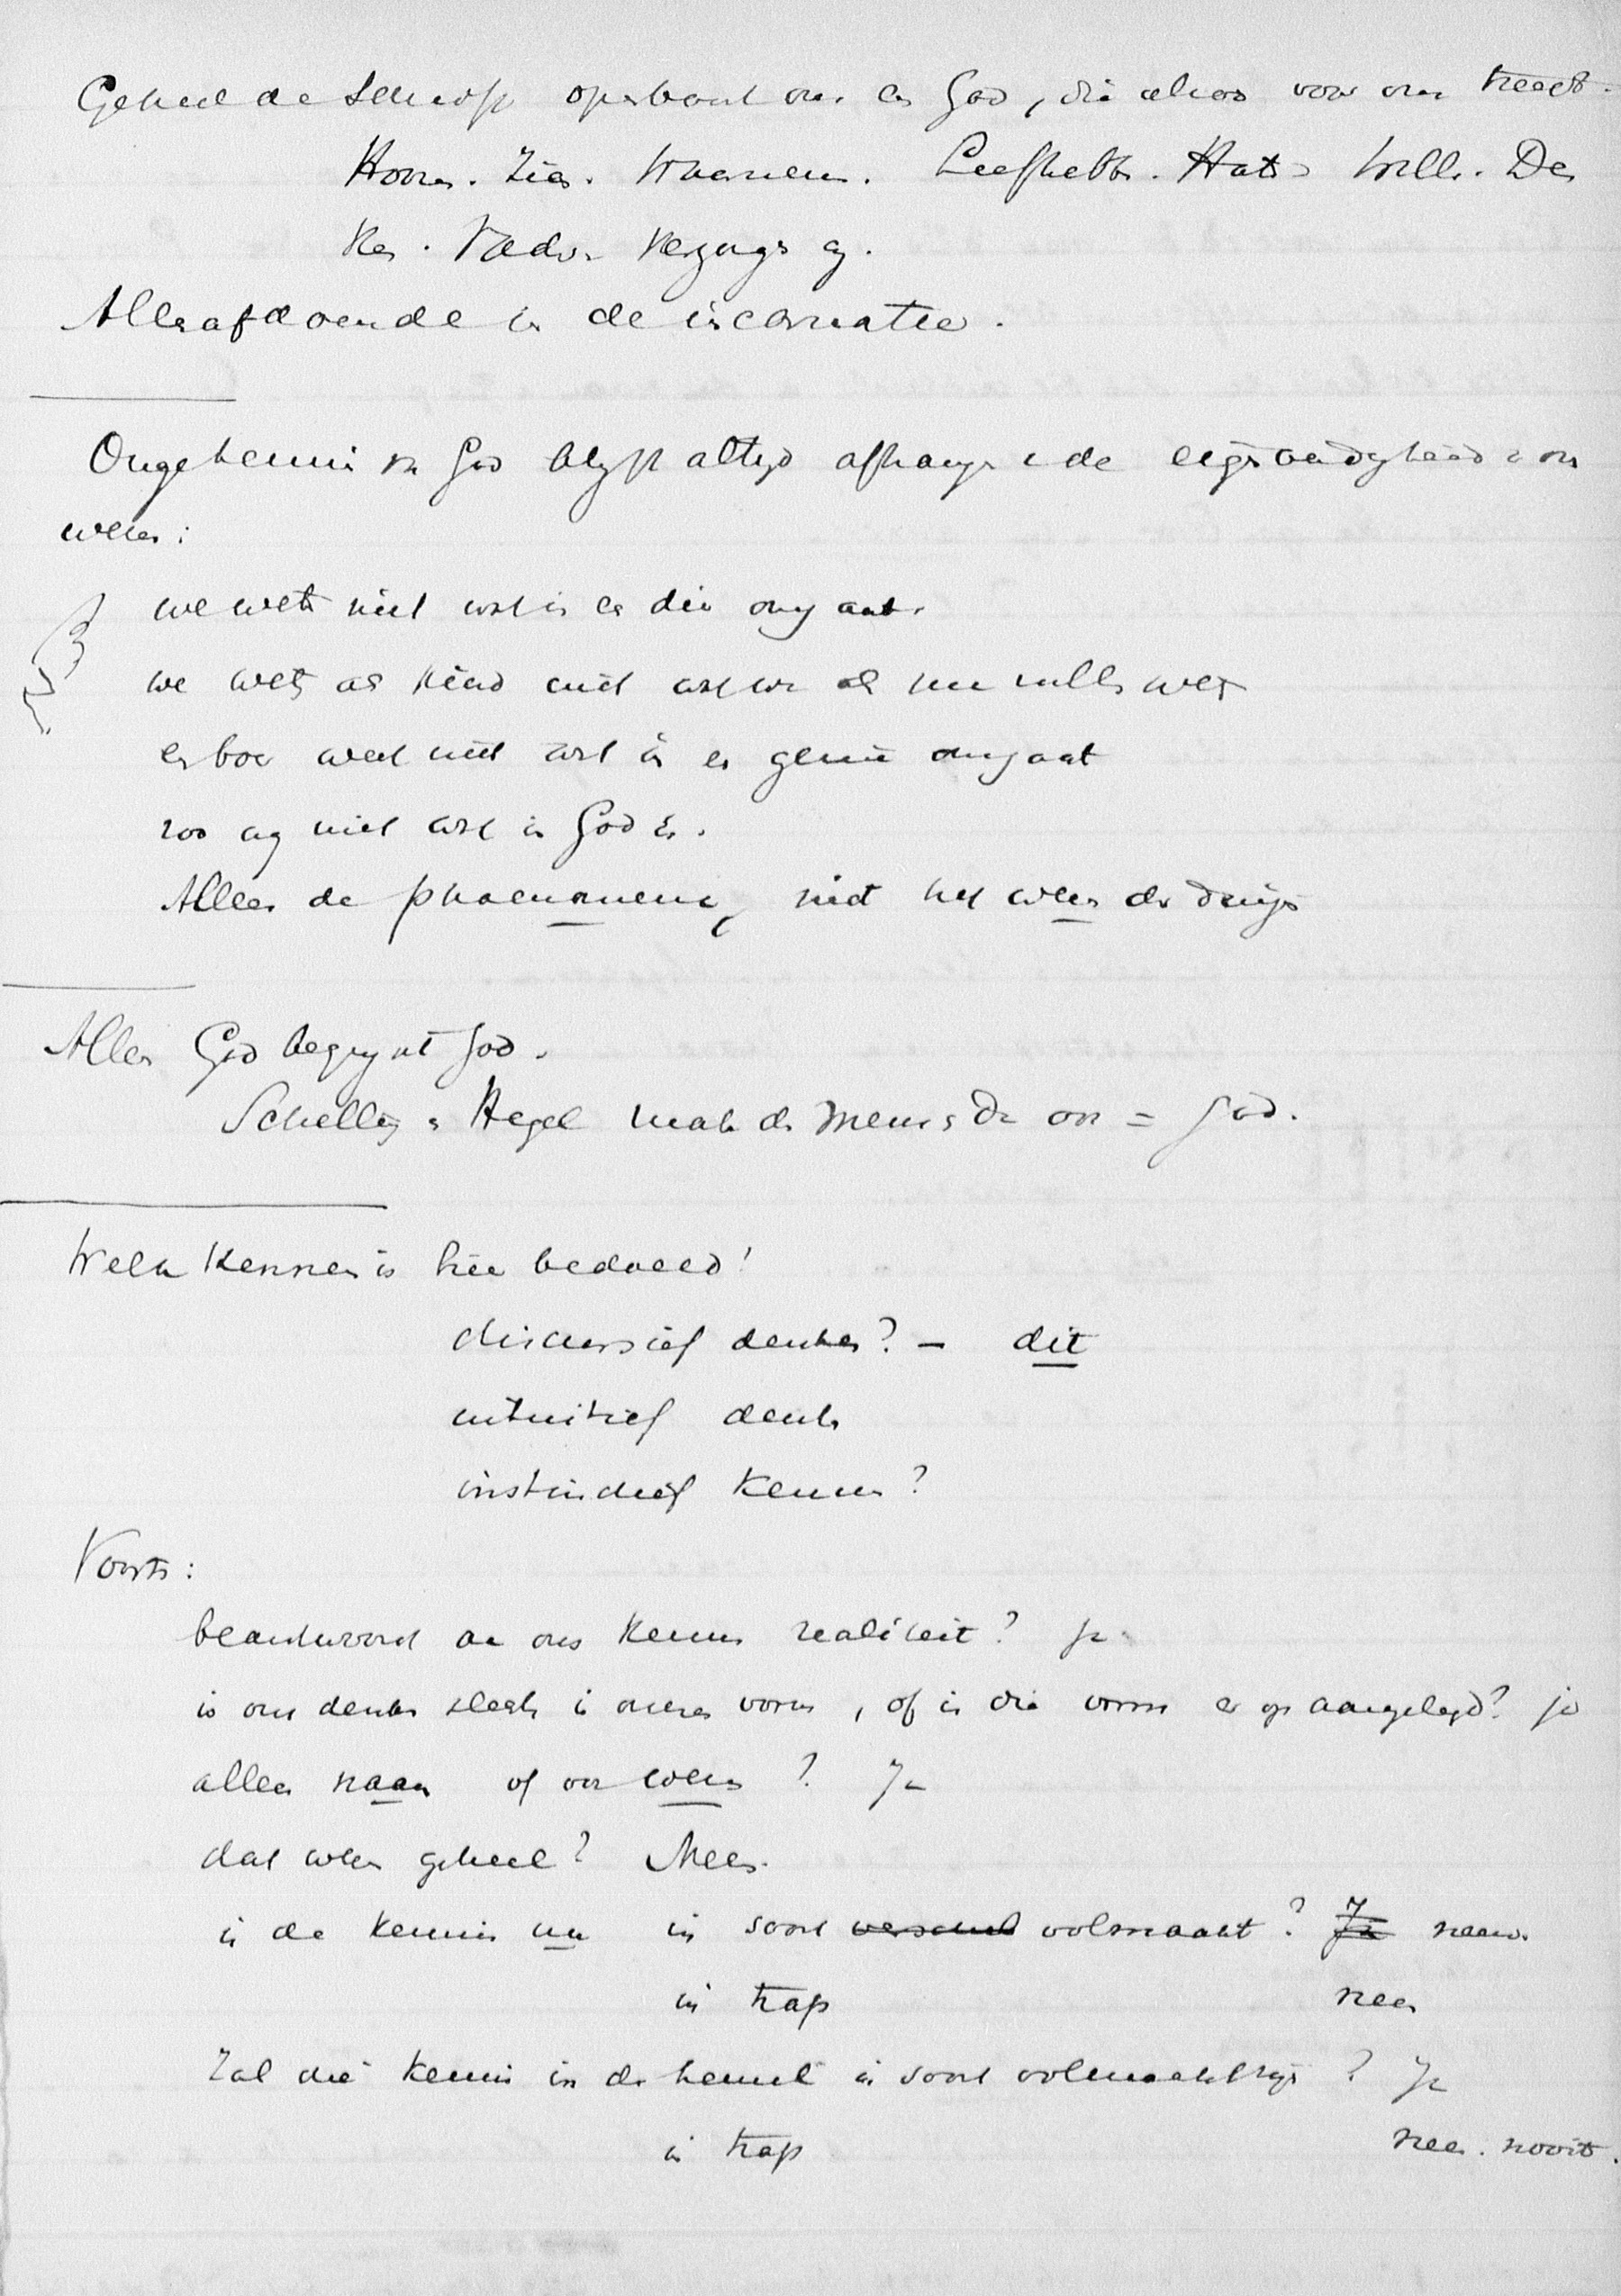 Geheel de Schrift openbaart ons en God, die alzoo voor ons treedt.
Hooren. Zien. Waarnemen. Liefhebben. Haten. Willen. Den
ken. Vader.
Allesafdoende is de incarnatie.
Onze kennis van God blyft altyd afhangen de eigenaardigheid v ons
wezen:
we weten niet wat in en dier omgaat.
we weten als kind niet wat we als man zullen weten
en boer weet niet wat in en genie omgaat
zoo ny niet wat in God is.
Alleen de phaenomena, niet het wezen der dingen
Alleen God begrypt God.
Schelling & Hegel maken de mensch dan ook = God.
Welk kennen is hier bedoeld?
discursief denken? – dit
intuitief denken
instinctief kennen?
Voorts:
beantwoord aan ons kennen realiteit? Ja
is ons denken slechts in onzen vorm, of is die vorm er op aangelegd? ja
alleen naam of ook wezen? Ja
dat wezen geheel? Neen.
is de kennis nu in soort verschil volmaakt? Ja neen.
in trap neen
Zal die kennis in de hemel in soort volmaakt zyn? Ja
in trap neen. nooit.